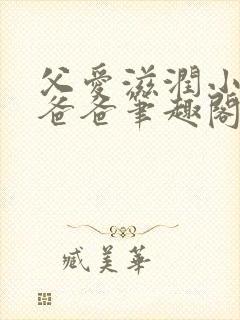 父爱滋潤小
爸爸筆趣閣
臧美華